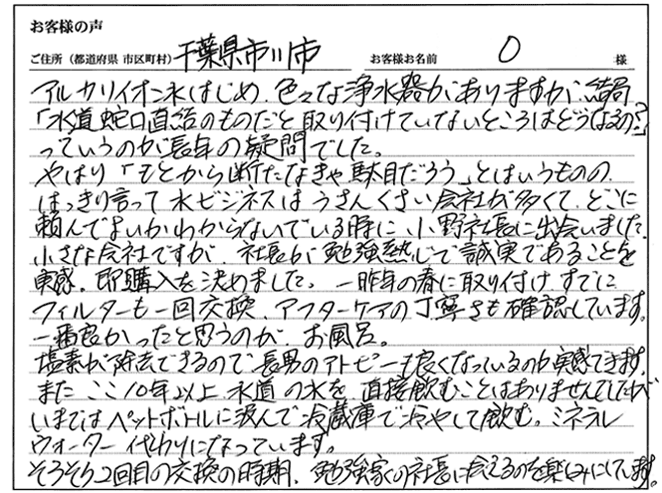 お客様の声
ご住所（都道府県 市区町村）千葉県市川市 お客様お名前 O 様
アルカリイオン水はじめ、色々な浄水器がありますが、結局
「水道蛇口直結のものだと取り付けていないところはどうなるの?」
っていうのが長年の疑問でした。
やはり「もとから断たなきゃ駄目だろう」とはいうものの、
はっきり言って水ビジネスはうさんくさい会社が多くて、どこに
頼んでよいかわからないでいる時に、小野社長に出会いました。
小さな会社ですが、社長が勉強熱心で誠実であることを
実感。即購入を決めました。一昨年の春に取り付け、すでに
フィルターも一回交換、アフターケアの丁寧さも確認しています。
一番良かったと思うのが、お風呂。
塩素が除去できるので、長男のアトピーも良くなっているのが実感できます。
また、ここ10年以上、水道の水を直接飲むことはありませんでしたが
いまではペットボトルに汲んで冷蔵庫で冷やして飲む。ミネラル
ウォーター代わりになっています。
そろそろ2回目の交換の時期、勉強家の社長に会えるのを楽しみにしています。